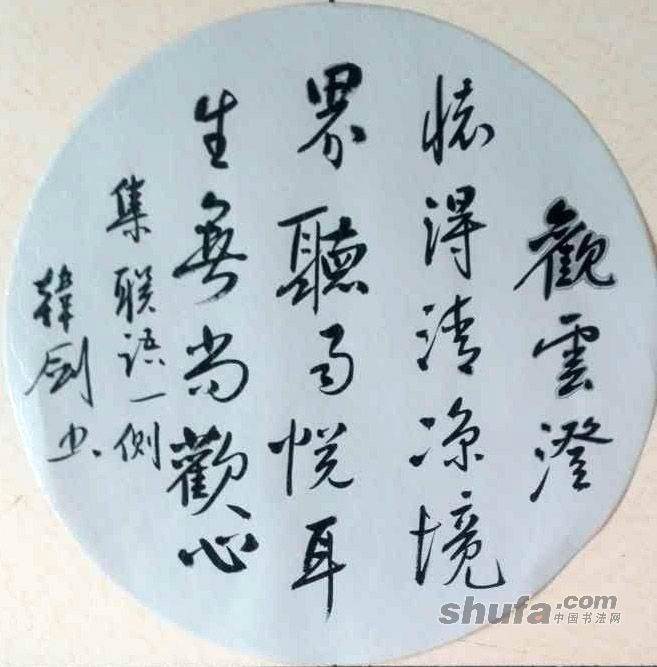 觀雲澄
懷得清凉境
界聽雨悅耳
生無尚歡心
集联语一侧
韓剑书
shufa.com
中国书法网